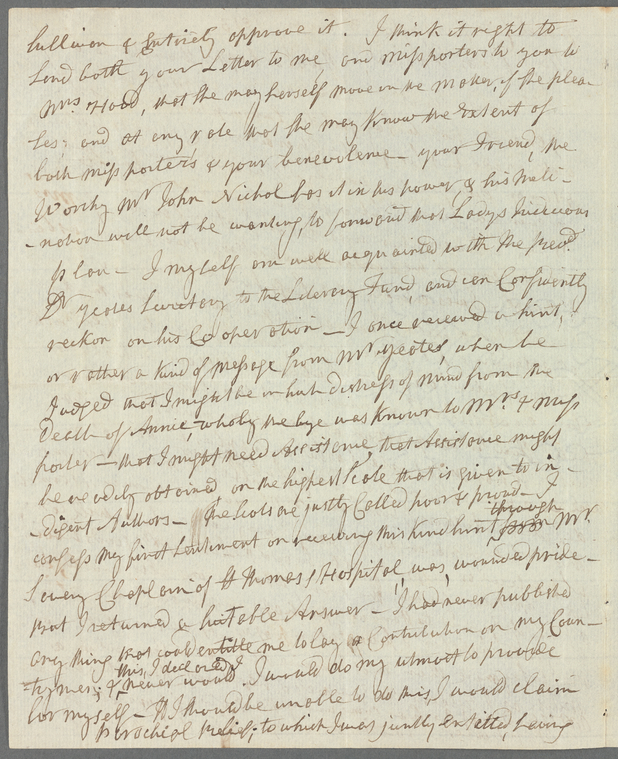 Sullivan & Entirely approve it. I think it right to
Send both your Letter to me, and Miss porters to you to
Mrs Hood, that she may herself move in the matter, if she plea-
ses; and at any rate that she may know the Extent of
both miss porter's & your benevolence - your Friend, the
Worthy Mr John Nichol has it in his power, & his Incli-
-nation will not be wanting, to forward that Ladys Judicious
plan - I myself am well acquainted with the Revd.
Dr yeates Secretary to the Literary Fund, and can Confidently
reckon on his Cooperation - I once received a hint,
or rather a kind of message from Mr yeates, when he
Judged that I might be in such distress of mind from the
Death of Annie, - who by the bye was known to Mrs & Miss
porter - that I might need Assistance, that Assistance might
be readily obtained on the highest Scale that is given to in-
-digent Authors - The Scots are justly Called poor & proud - I
confess my first Sentiment on receiving this kind hint through Mr
Savery Chaplain of St Thomas's Hospital, was, wounded pride -
that I returned a suitable Answer - I had never published
any thing that could entitle me to lay a Contribution on my Coun-
-trymen; & this, I declared, I never would. I would do my utmost to provide
for myself - If I should be unable to do this, I would claim
parochial Relief; to which I was justly entitled, having